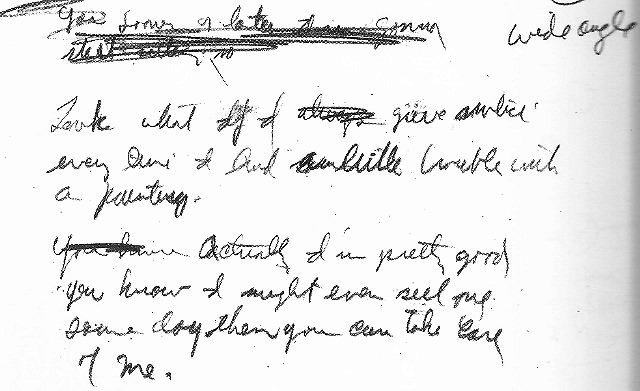 You sooner or later I'm gonna
start
wide angle
Look what if I always give
every time I had a little trouble with
a painting.
You have Actually I'm pretty good
you know I might even sell one
some day then you can take care
of me.